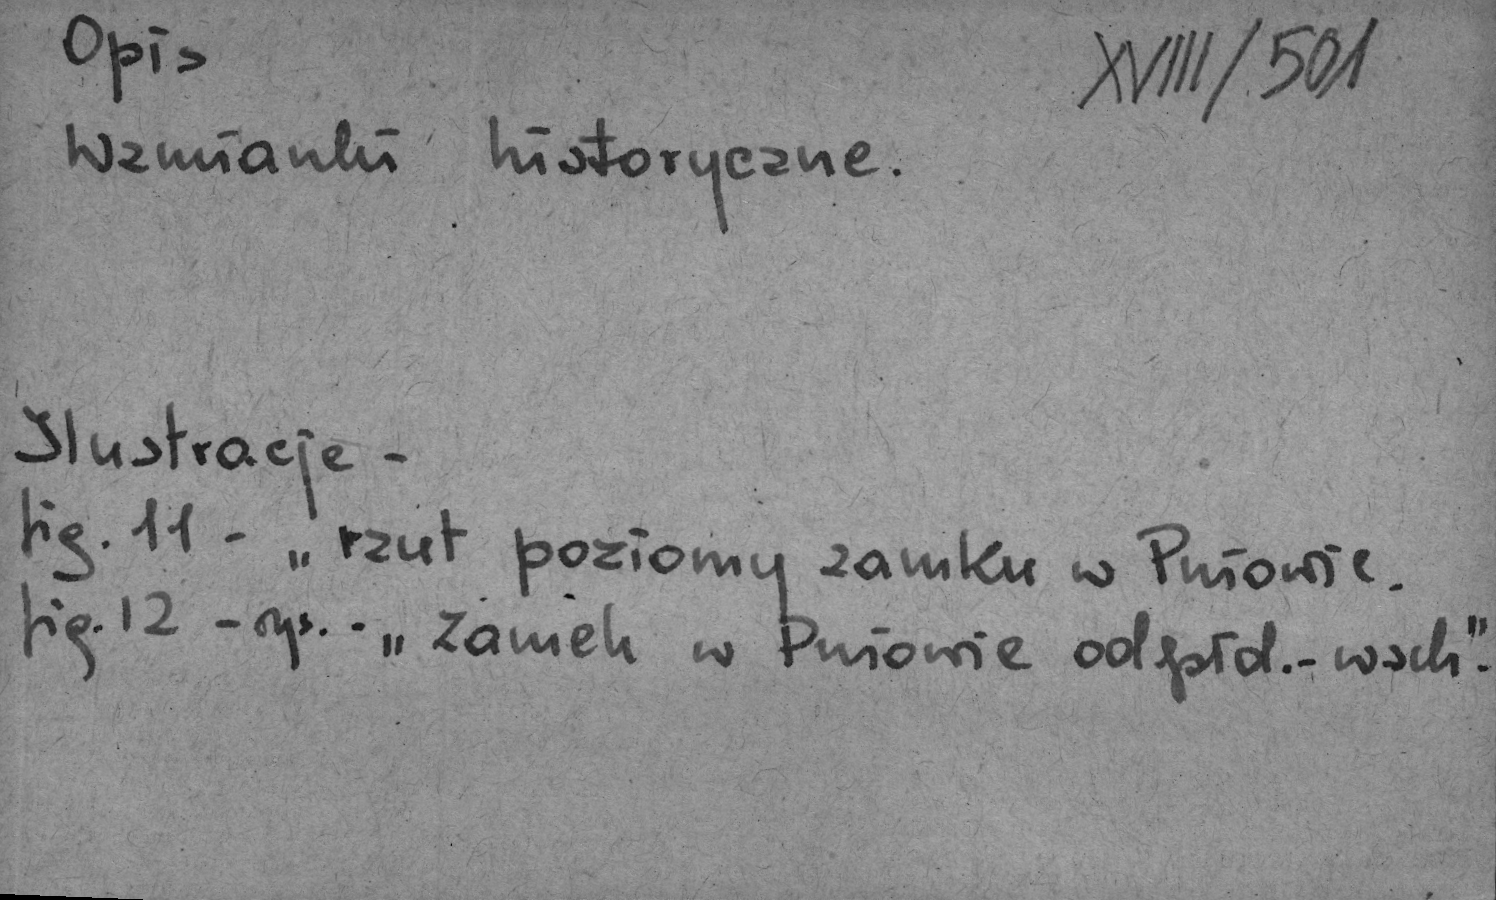 Opis
XVIII/501
Wzmianki historyczne.
Ilustracje -
fig. 11 - „rzut poziomy zamku w Pniowie.
fig. 12 - rys. - „Zamek w Pniowie od płd.-wsch".